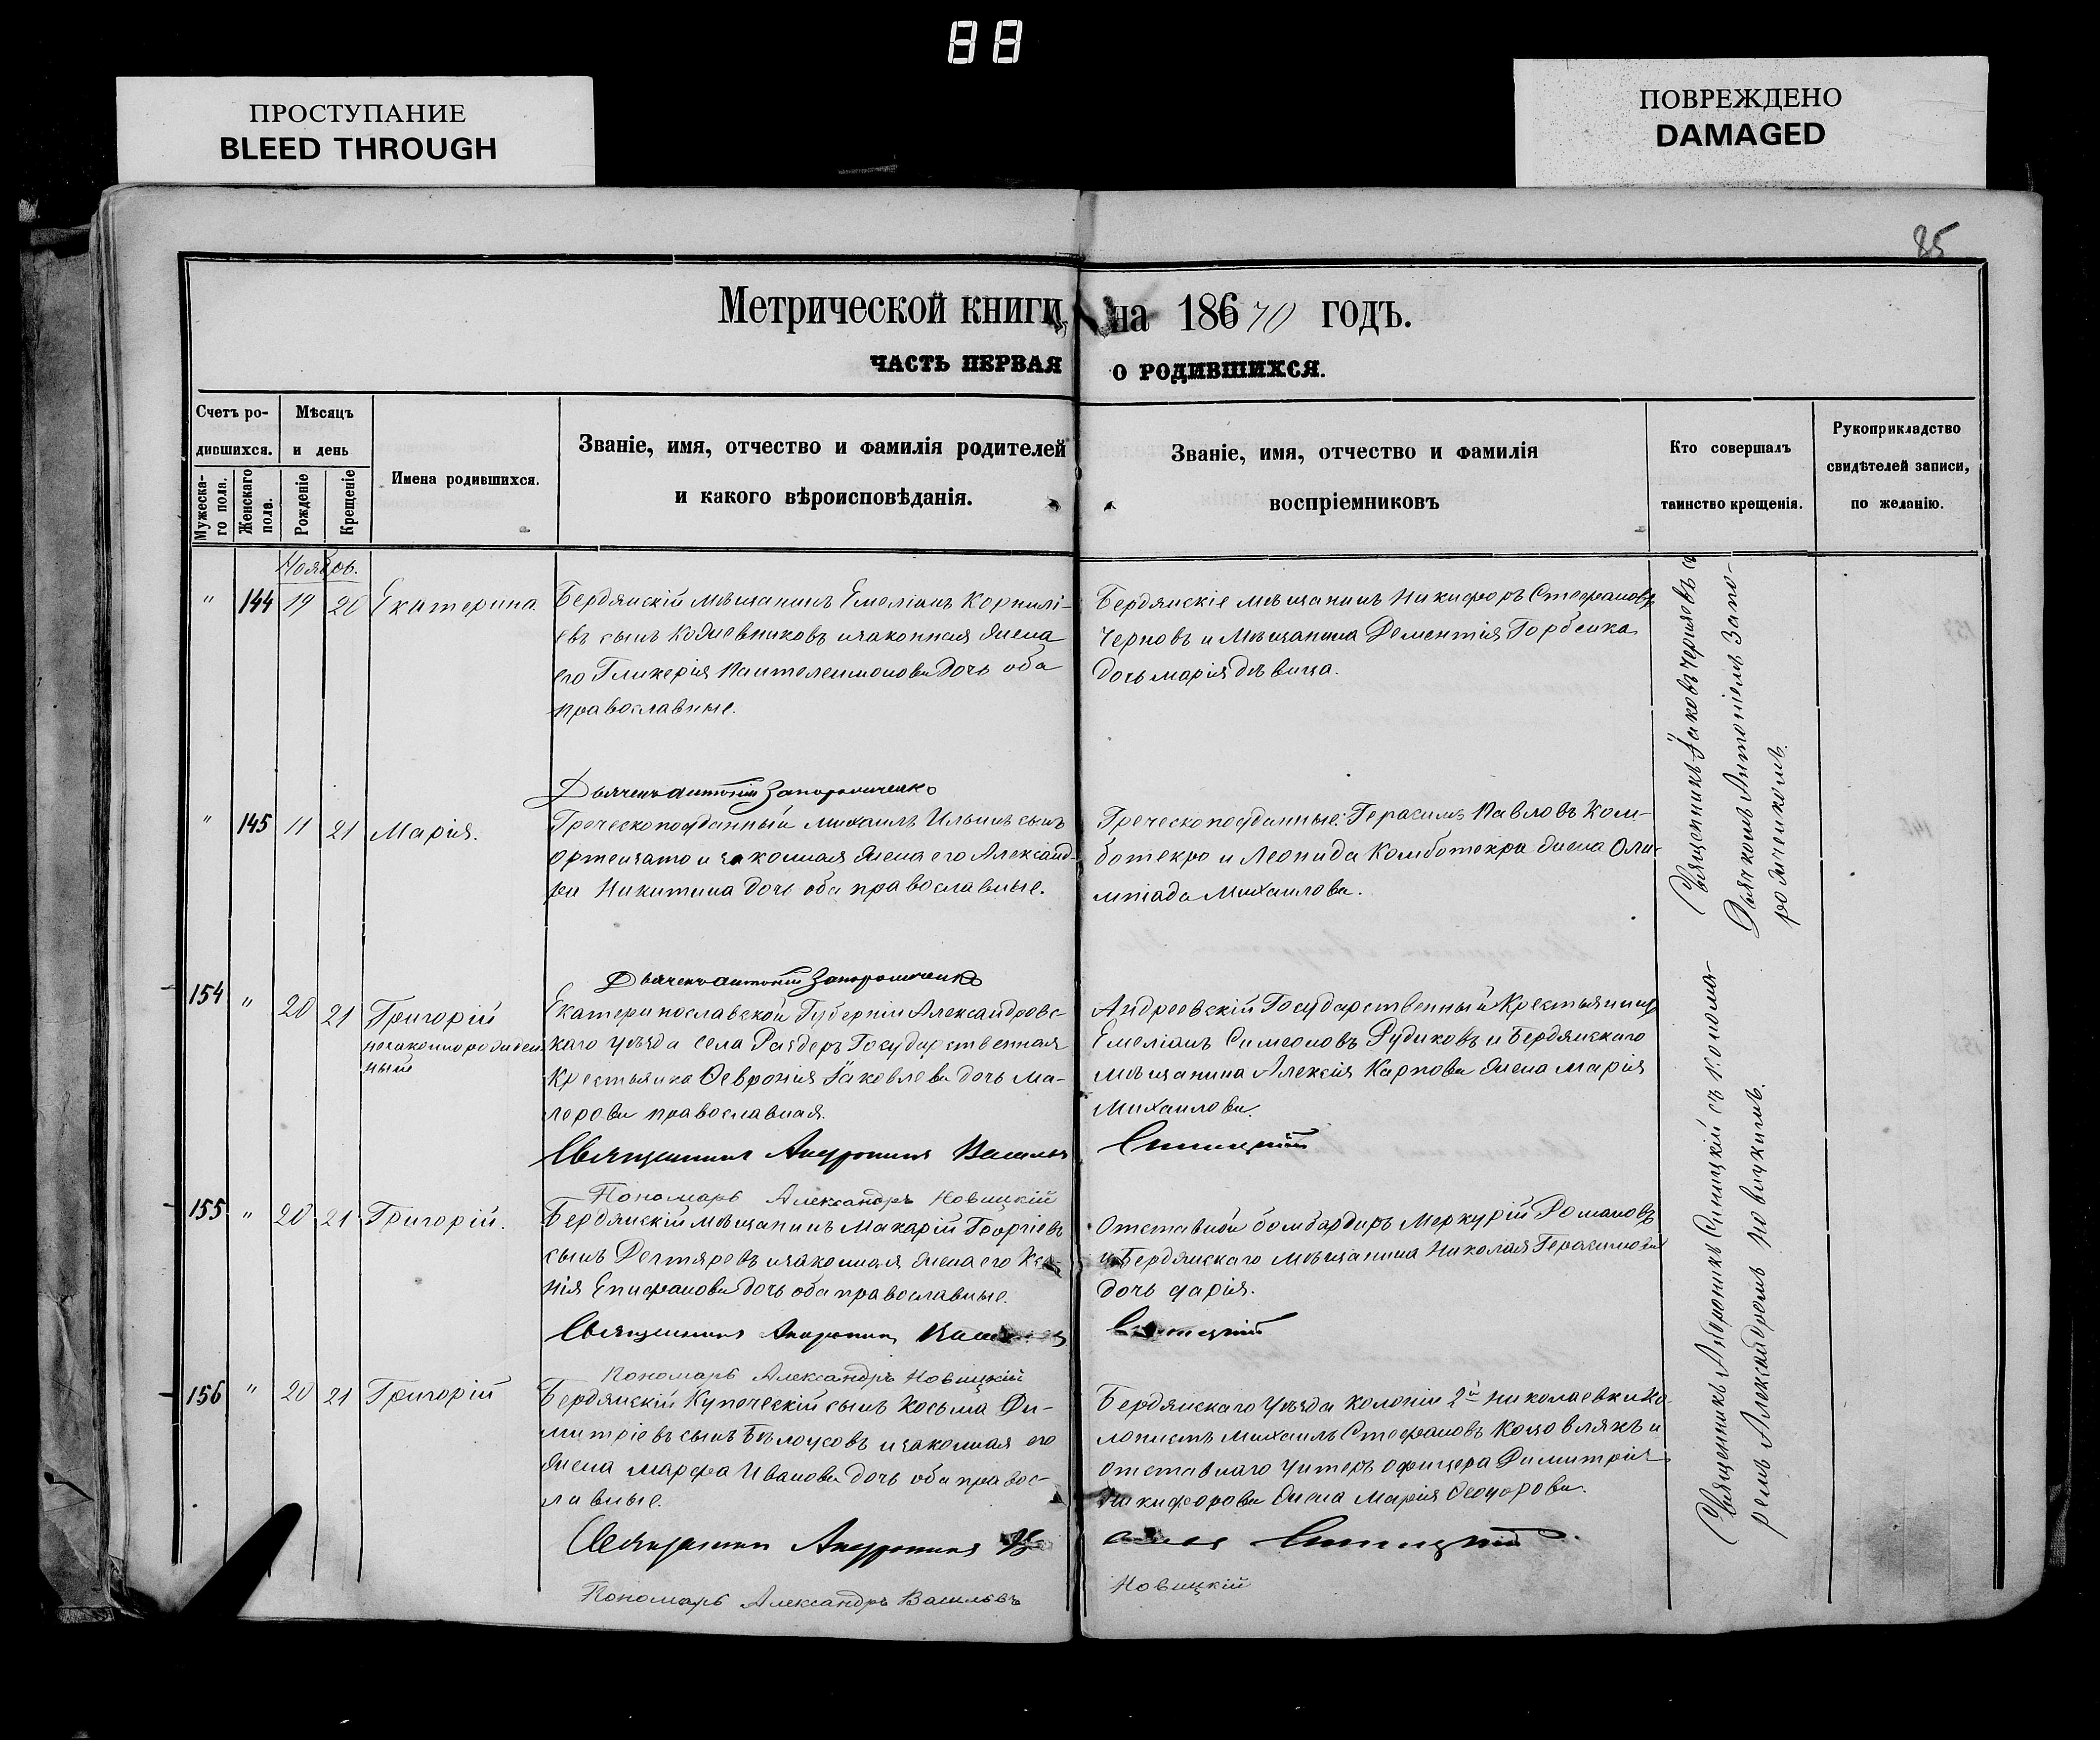 88
ПРОСТУПАНИЕ
BLEED THROUGH
ПОВРЕЖДЕНО
DAMAGED
85
Метрической книги на 18670 годъ.
ЧАСТЬ ПЕРВАЯ О РОДИВШИХСЯ.
Счетъ ро-
дившихся.
Мужеска-
го пола.
Женскаго
пола.
Мѣсяцъ
и день
Рожденіе
Крещеніе
Имена родившихся.
Званіе, имя, отчество и фамилія родителей
и какого вѣроисповѣданія.
Званіе, имя, отчество и фамилія
воспріемниковъ
Кто совершалъ
таинство крещенія.
Рукоприкладство
свидѣтелей записи,
по желанію.
Ноябрь.
" 144 19 20 Екатерина
Бердянскій мѣщанинъ Емеліанъ Корнилі-
евъ сынъ Кодневниковъ и законная жена
его Гликерія Пантелеимонова дочь оба
православные.
Бердянскіе мѣщанинъ Никифоръ Стефановъ
Черновъ и мѣщанина Дементія Горбенка
дочь марія дѣвица.
Дьячекъ антоній Запорожченко
" 145 11 21 Марія.
Греческоподданный михаилъ Ильинъ сынъ
и законная жена его Александ-
ра Никитина дочь оба православные.
Греческоподданные: Герасимъ Павловъ Ком-
ботекро и Леонида Комботекра жена Оли-
мпіада Михаилова.
Дьячекъ антоній Запорожченко
154 " 20 21 Григорій
незаконнорожден-
ный
Екатеринославской Губерніи Александровс-
каго уѣзда села Раздоръ Государственная
Крестьянка Февронія Іаковлева дочь Ма-
лорова православная.
Андреевскій Государственный Крестьянинъ
Емеліанъ Симеоновъ Рудиковъ и Бердянскаго
мѣщанина Алексія Карпова жена марія
Михаилова.
Священникъ Андроникъ Васильевъ Синицкій
Пономарь Александръ Новицкій
155 " 20 21 Григорій.
Бердянскій мѣщанинъ Макарій Георгіевъ
сынъ Дегтяревъ и законная жена его
нія Епифанова дочь оба православные.
Отставной бомбардиръ Меркурій Романовъ
и Бердянскаго мѣщанина Николая Герасимова
дочь
Священникъ Андроникъ Синицкій
Пономарь Александръ Новицкій
156 " 20 21 Григорій
Бердянскій Купеческій сынъ Косьма Ди-
митріевъ сынъ Бѣлоусовъ и законная его
жена марфа Иванова дочь оба правос-
лавные.
Бердянскаго уѣзда колоніи 2й Николаевки ко-
лонистъ михаилъ Стефановъ Коцовлякъ и
отставнаго унтеръ офицера Димитрія
Никифорова жена Марія Феодорова.
Священникъ Андроникъ Синицкій
Пономарь Александръ Васильевъ Новицкій
Священникъ Іаковъ Черняевъ съ
Дьячкомъ Антоніемъ Запо-
рожченкомъ.
Священникъ Андроникъ Синицкій съ понома-
ремъ Александромъ Новицкимъ.